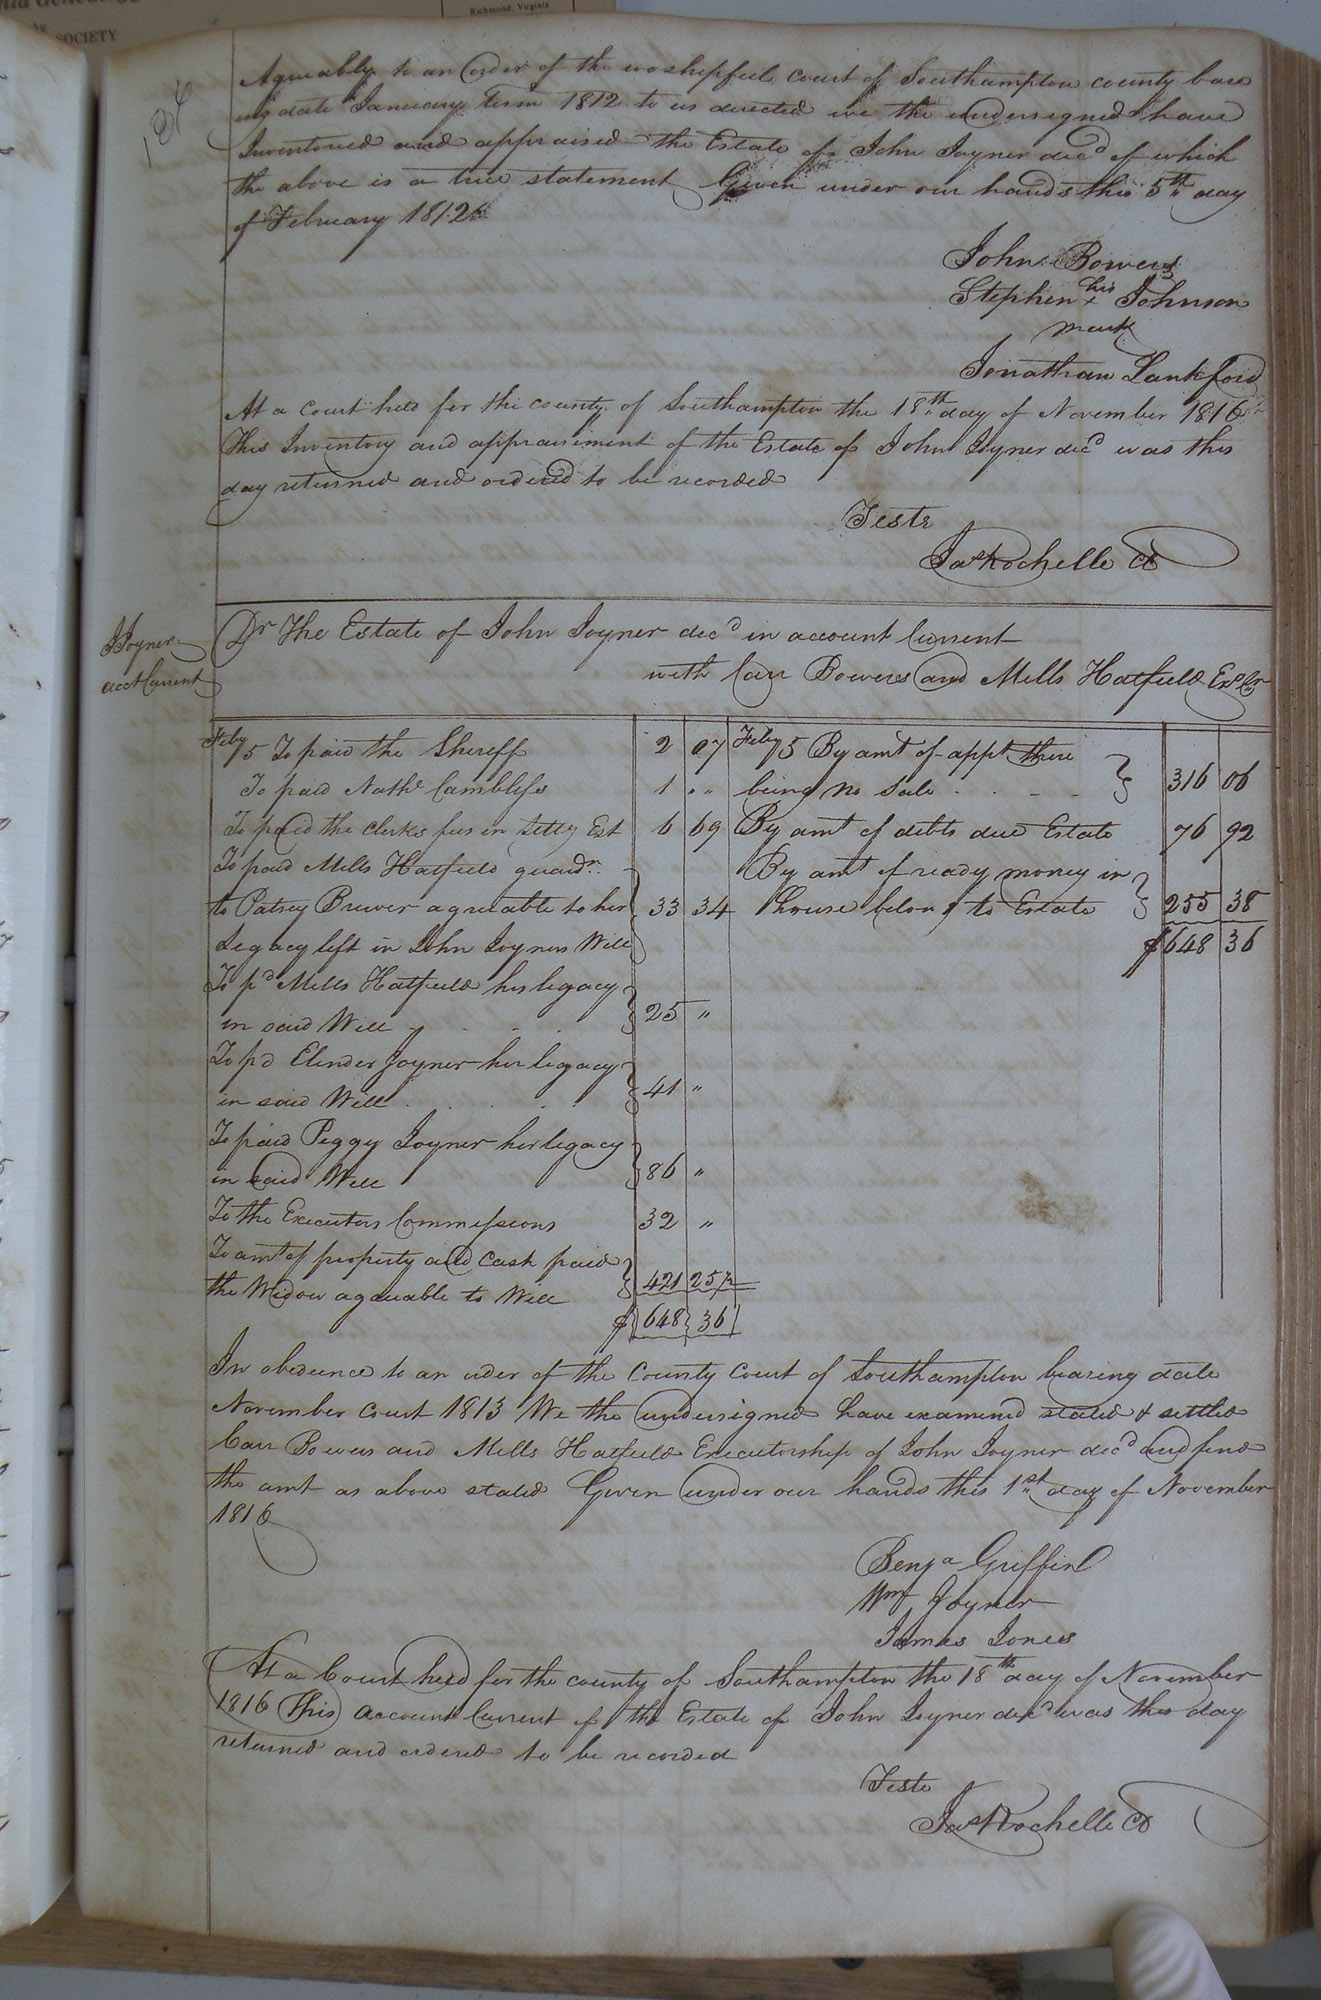 SOCIETY
Richmond, Virginia
184
Agreably to an order of the worshipful court of Southampton county bear
ing date January term 1812 to us directed we the undersigned have
Inventoried and appraised the Estate of John Joyner decd of which
the above is a true statement Given under our hands this 5th day
of February 1812
John Bowers
Stephen his x Johnson
mark
Jonathan Lankford
At a Court held for the county of Southampton the 18th day of November 1816
This Inventory and appraisement of the Estate of John Joyner decd was this
day returned and ordered to be recorded
Teste
Jas Rochelle CC
J Joyner
acct Current
Dr The Estate of John Joyner decd in account Current
with Carr Bowers and Mills Hatfield Exors Cr
Feby 5 To paid the Sheriff 2 07 Feby 5 By amt of appt there
To paid Nathl 1 " being no Sale 316 06
To paid the clerks fees in Exst 6 69 By amt of debts due Estate 76 92
To paid Mills Hatfield guardn By amt of ready money in
to Patsey Brewer agreable to her 33 34 house belong to Estate 255 38
Legacy left in John Joyners Will $648 36
To pd Mills Hatfield his legacy
in said Will 25 "
To pd Elender Joyner her legacy
in said Will 41 "
To paid Peggy Joyner her legacy
in said Will 86 "
To the Executors Commissions 32 "
To amt of property and cash paid
the Widow agreable to Will 421 25½
$648 36
In obedience to an order of the County Court of Southampton bearing date
November Court 1813 We the undersigned have examined stated & settled
Carr Bowers and Mills Hatfield Executorship of John Joyner decd and find
the amt as above stated Given under our hands this 1st day of November
1816
Benja Griffin
Wm Joyner
James Jones
At a Court held for the county of Southampton the 18th day of November
1816 This account Current of the Estate of John Joyner decd was this day
returned and ordered to be recorded
Teste
Jas Rochelle CC